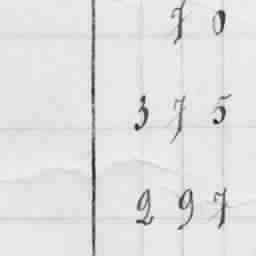 70
375
297